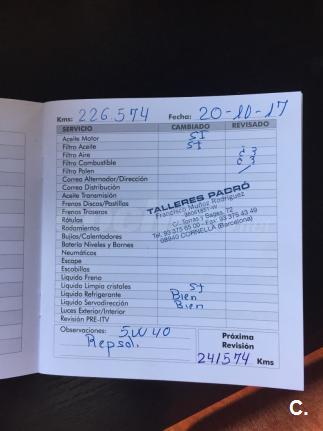 Kms: 226.574 Fecha: 20-10-17
SERVICIO CAMBIADO REVISADO
Aceite Motor SI
Filtro Aceite SI
Filtro Aire
Filtro Combustible
Filtro Polen
Correa Alternador/Dirección
Correa Distribución
Aceite Transmisión
Frenos Discos/Pastillas
Frenos Traseros
Rótulas
Rodamientos
Bujías/Calentadores
Batería Niveles y Bornes
Neumáticos
Escape
Escobillas
Líquido Freno
Líquido Limpia cristales SI
Líquido Refrigerante Bien
Líquido Servodirección Bien
Luces Exterior/Interior
Revisión PRE-ITV
TALLERES PADRÓ
Francisco Muñoz Rodríguez
C/. Torras y Bages, 72
08940 CORNELLÀ (Barcelona)
Observaciones: 5W40
Repsol.
Próxima
Revisión
241574 Kms
C.